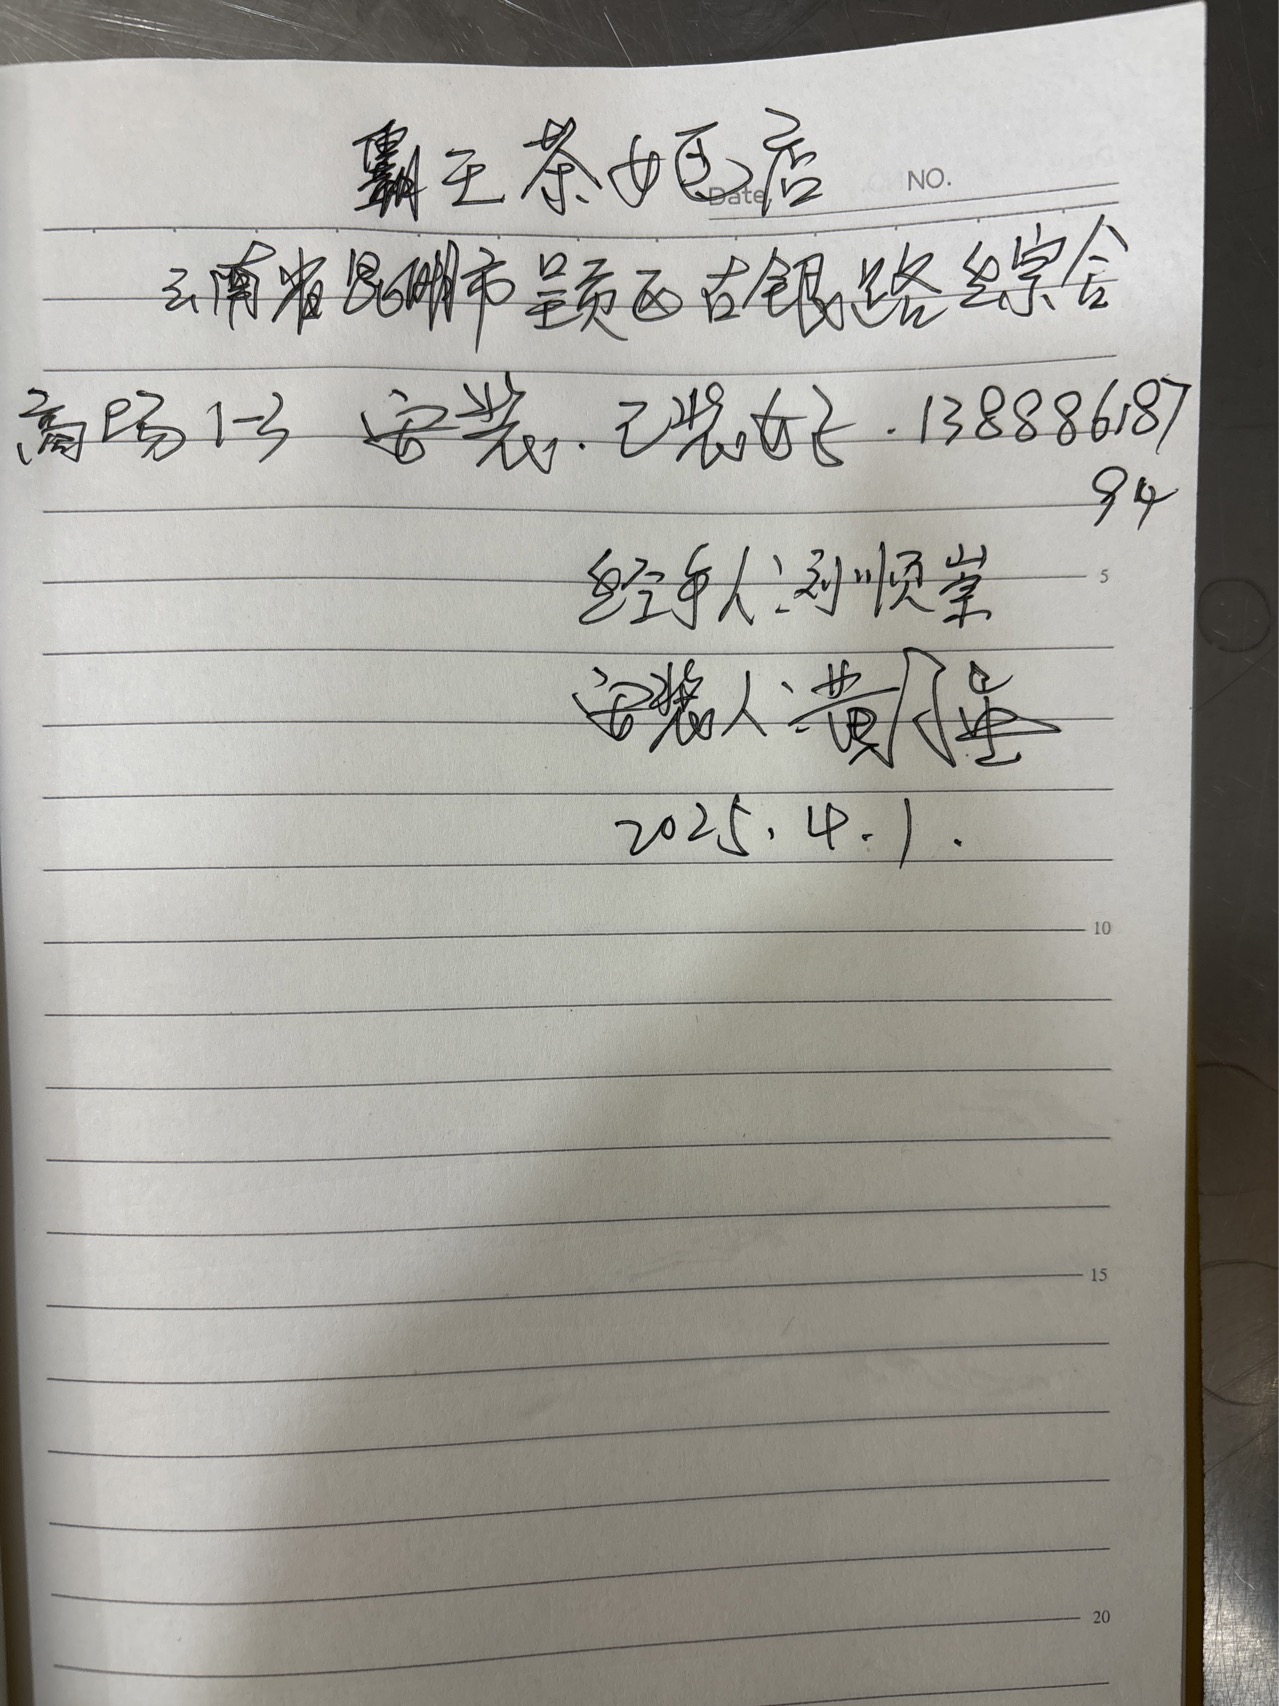 霸王茶姬店
Date. NO.
云南省昆明市呈贡区古银路综合
商场1-3 安装.已装好.138886187
94
经手人:刘顺崇
5
安装人:黄
2025.4.1.
10
15
20